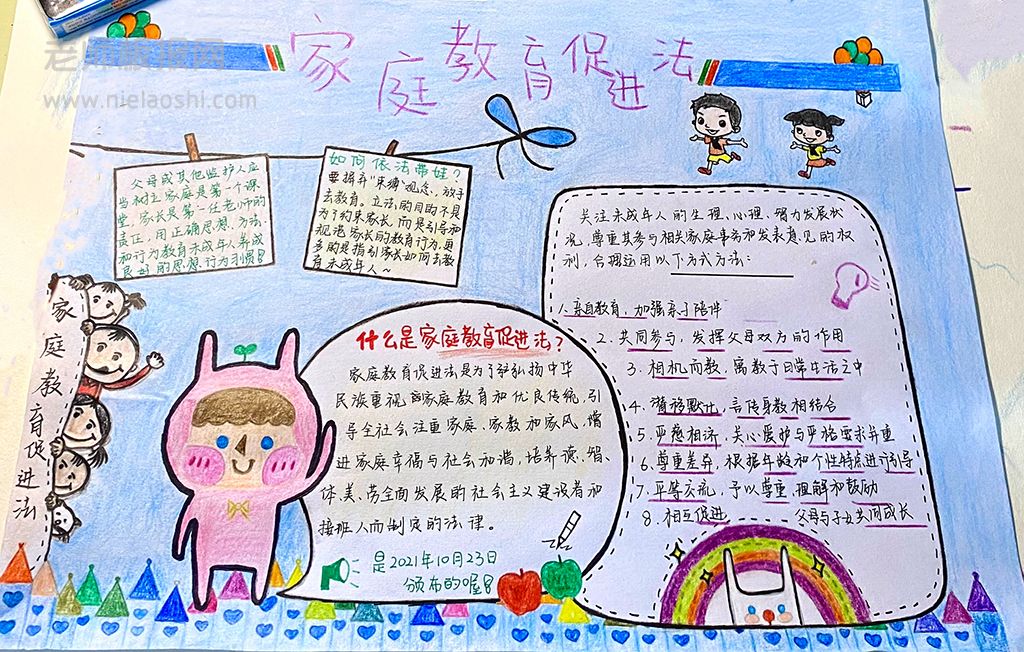 老师板报网
www.nielaoshi.com
家庭教育促进法
父母或其他监护人应
当树立家庭是第一个课
堂，家长是第一任老师的
责任，用正确思想、方法
和行为教育未成年人养成
良好的思想、行为习惯！
如何依法带娃？
要摒弃"束缚"观念，放手
去教育。立法的目的不是
为了约束家长，而是引导和
规范家长的教育行为，更
多的是指引家长如何去教
育未成年人～
家庭教育促进法
什么是家庭教育促进法？
家庭教育促进法是为了弘扬中华
民族重视家庭教育和优良传统，引
导全社会注重家庭、家教和家风，增
进家庭幸福与社会和谐，培养德、智、
体、美、劳全面发展的社会主义建设者和
接班人而制定的法律。
是2021年10月23日
颁布的喔！
关注未成年人的生理、心理、智力发展状
况，尊重其参与相关家庭事务和发表意见的权
利，合理运用以下方式方法：
1.亲自教育，加强亲子陪伴
2.共同参与，发挥父母双方的作用
3.相机而教，寓教于日常生活之中
4.潜移默化，言传身教相结合
5.严慈相济，关心爱护与严格要求并重
6.尊重差异，根据年龄和个性特点进行引导
7.平等交流，予以尊重、理解和鼓励
8.相互促进 父母与子女共同成长